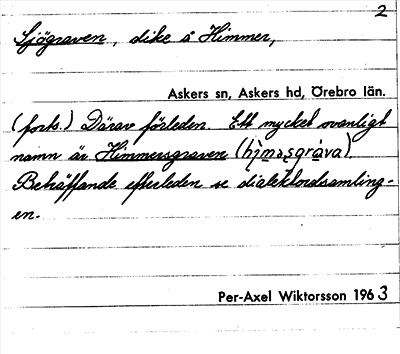 2
Sjögraven, dike å Himmer,
Askers sn, Askers hd, Örebro län.
(forts.) Därav förleden. Ett mycket ovanligt
namn är Himmersgraven (hìməʂgràva).
Beträffande efterleden se dialektordsamling-
en.
Per-Axel Wiktorsson 1963